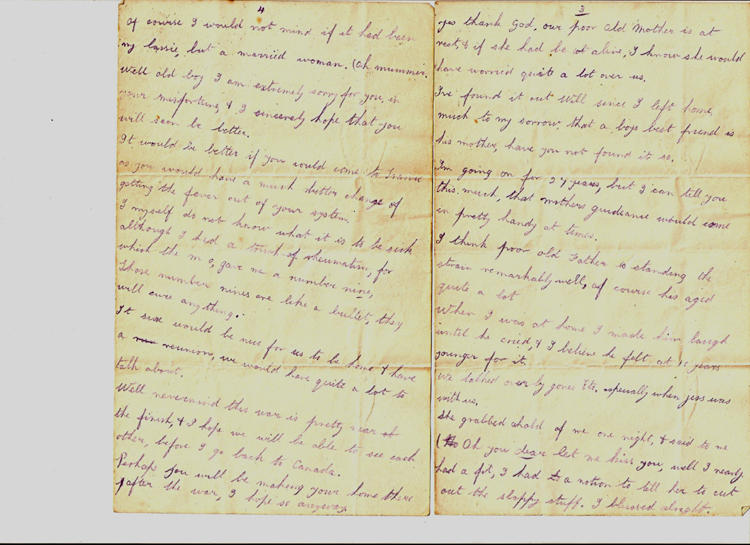 3
yes thank God, our poor old Mother is at
rest, & if she had be at alive, I know she would
have worried quite a lot over us.
I've found it out Will since I left home,
much to my sorrow, that a boys best friend is
his mother, have you not found it so.
I'm going on for years, but I can tell you
this much, that mothers guideance would come
in pretty handy at times.
I think poor old Father is standing the
strain remarkably well, of course his aged
quite a lot
When I was at home I made him laugh
until he cried, & I believe he felt at years
younger for it.
We talked over by gones Etc. especially when jess was
with us.
She grabbed ahold of me one night, & said to me
(Oh you dear let me kiss you, well I nearly
had a fit, I had a notion to tell her to cut
out the sloppy stuff. I blushed alright.
4
Of course I would not mind if it had been
my lassie, but a married woman. (Oh mummie.
Well old boy I am extremely sorry for you, in
your misfortune, & I sincerely hope that you
will soon be better.
It would be better if you could come to France
as you would have a much better change of
getting the fever out of your system.
I myself do not know what it is to be sick
although I had a touch of rheumatism, for
which the m o, gave me a number nine,
those number nines are like a bullet, they
will cure anything.
It would be nice for us to be home & have
a reunion, we would have quite a lot to
talk about.
Well nevermind this war is pretty near at
the finish, & I hope we will be able to see each
other, before I go back to Canada.
Perhaps you will be making your home there
after the war, I hope so anyway.